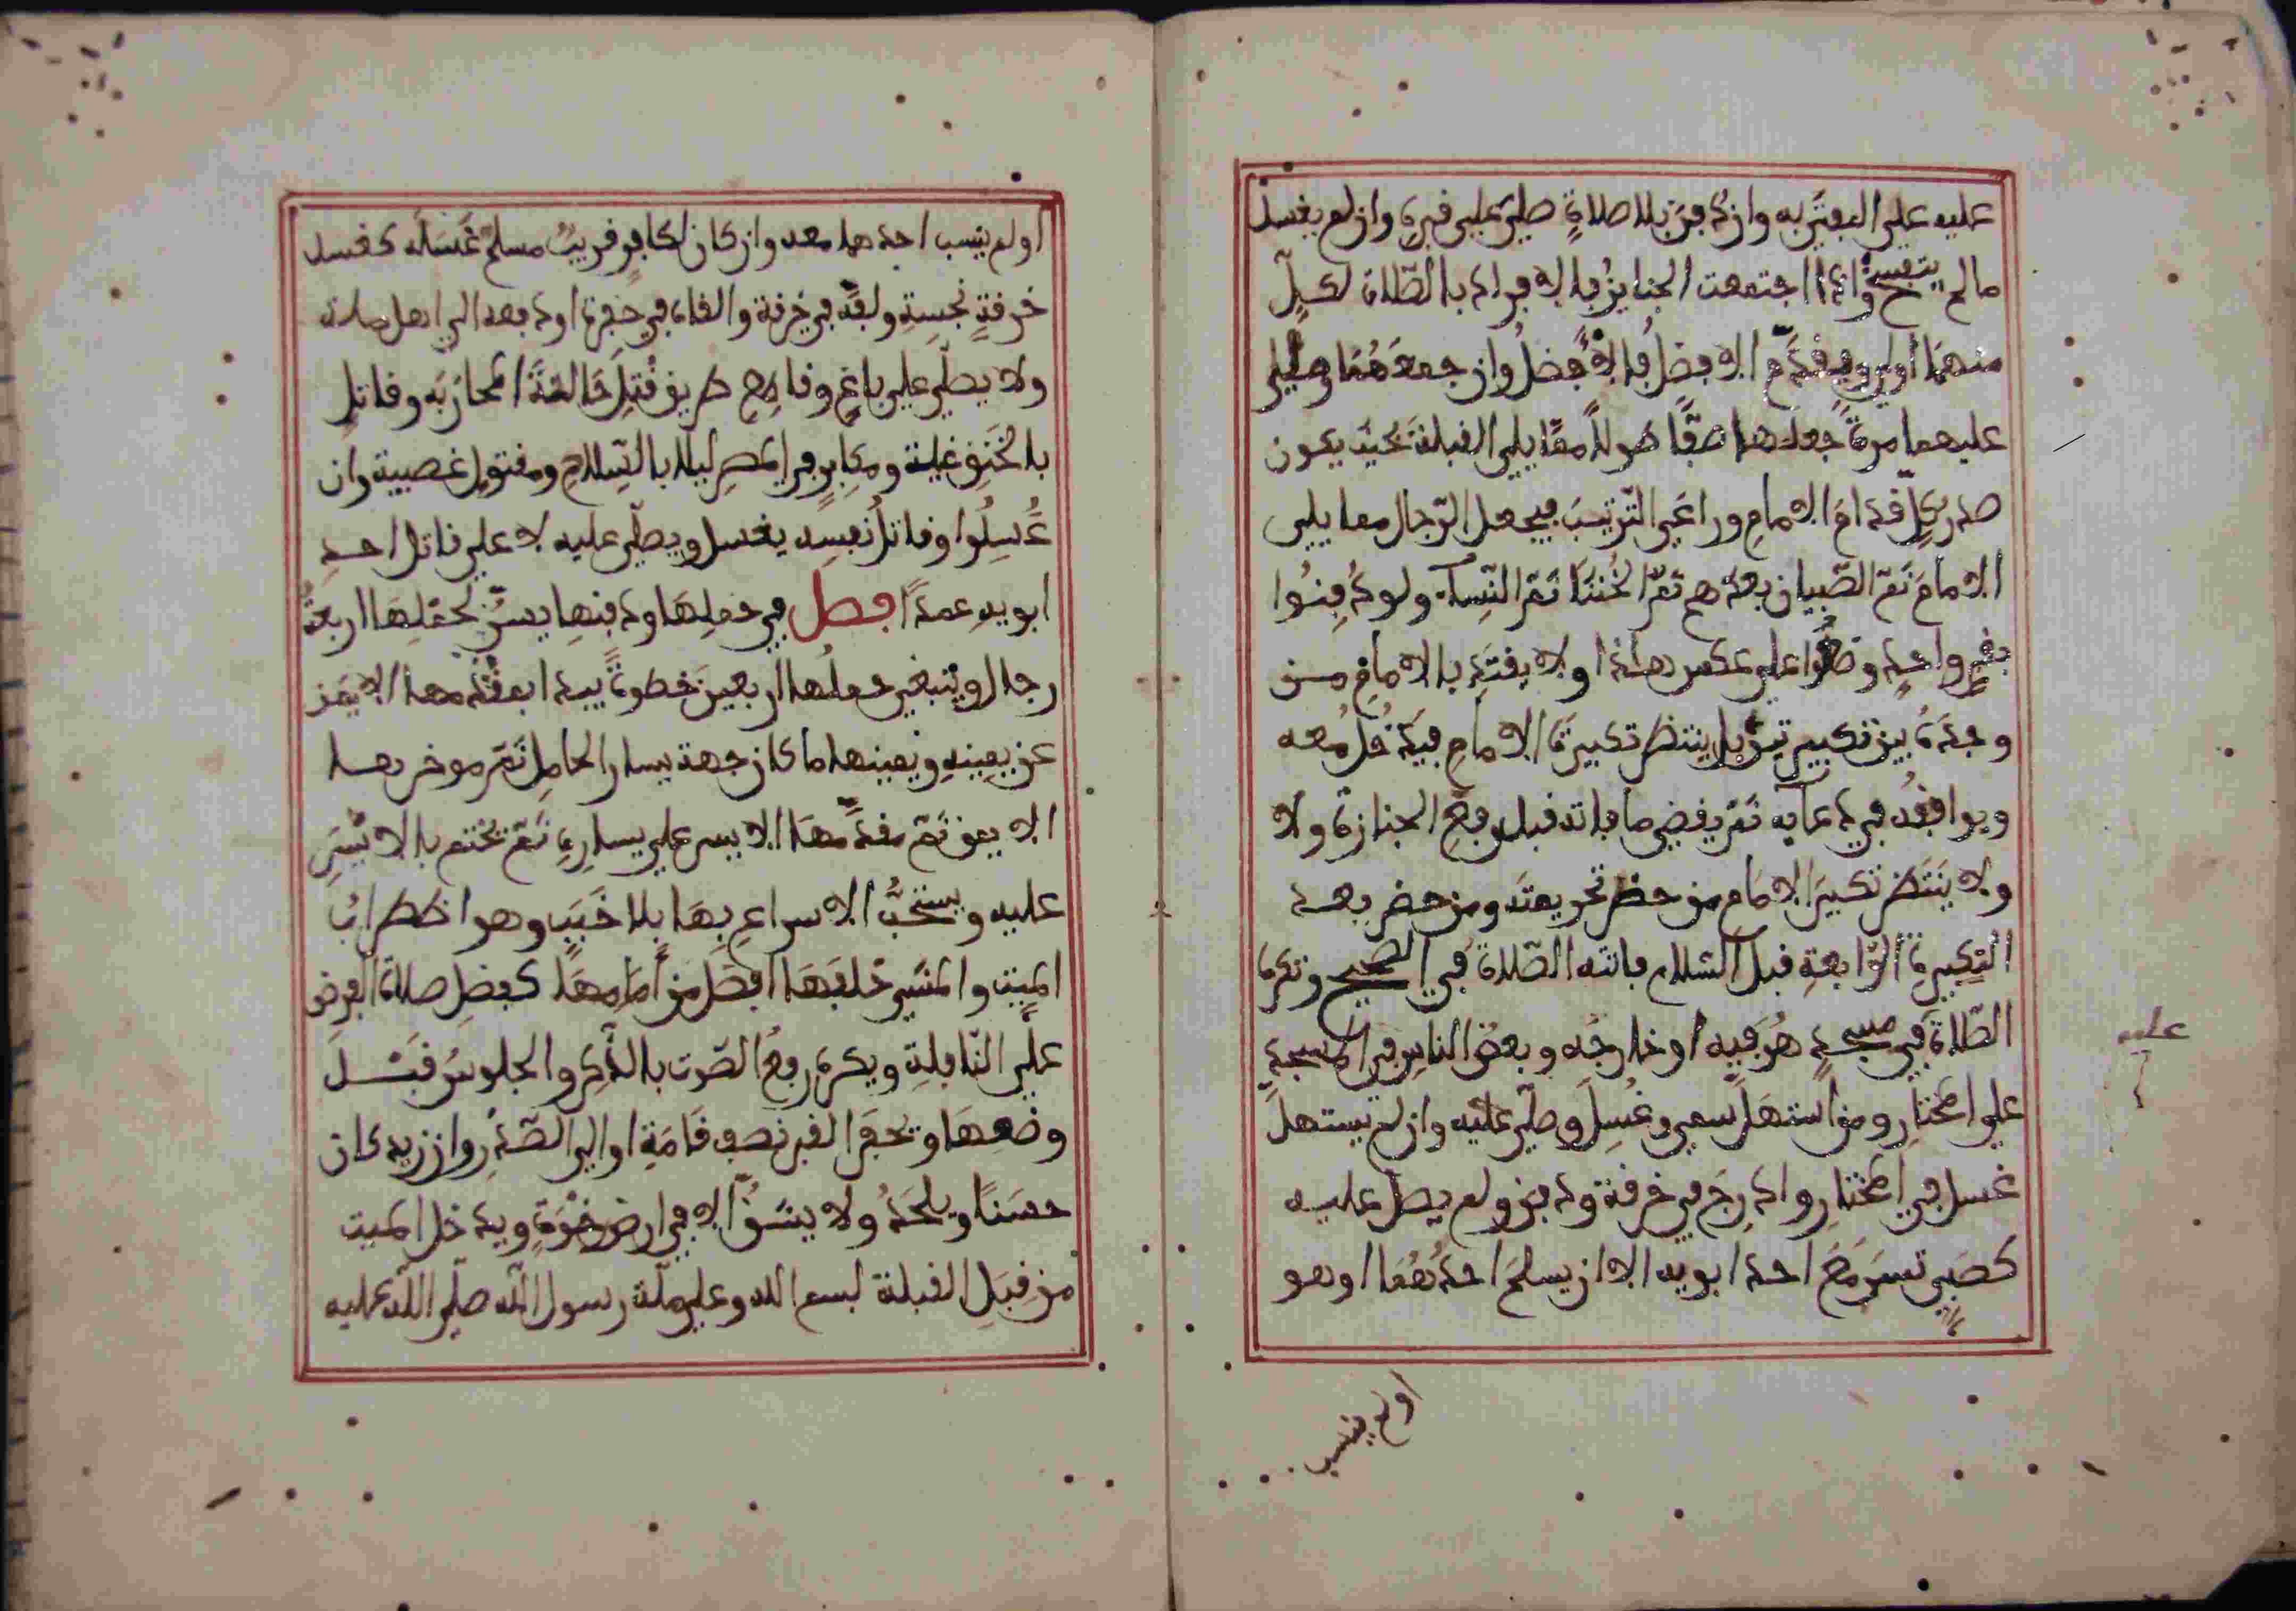 عليه على المفتى به وان دفن بلا صلاة صلي على قبره وان لم يغسل
مالم يتفسخ واذا اجتمعت الجنايز فالافراد بالصّلاة لكلٍّ
منهما أولى ويقدّم الافضل فالافضل وان جمعهما وصلى
عليهما مرة جعلها صفًّا طولاً ممّا يلي القبلة بحيث يكون
صدر كلّ قدام الامام وراعى التّرتيب فيجعل الرّجال مما يلي
الامام ثمّ الصّبيان بعدهم ثمّ الخنثا ثمّ النّساء ولو دُفِنُوا
بقبر واحد وضعوا على عكس هاذا ولا يقتد بالامام من
وجده بين تكبيرتين بل ينتظر تكبيرة الامام فيدخل معه
ويوافقه في دعآيه ثمّ يقضي ما فاته قبل رفع الجنازة ولا
ولا ينتظر تكبير الامام من حضر تحريمته ومن حضر بعد
التكبيرة الرّابعة قبل السّلام فاتته الصّلاة في الصحيح وتكره
الصّلاة في مسجد هو فيه او خارجه وبعض الناس في المسجد
على المختار ومن استهلّ سمي وغُسل وصلّى عليه وان لم يستهل
غسل في المختار وادرج في خرقة ودفن ولم يصل عليه
كصبي سبي مع احد ابويه الا ان يسلم احدهما او هو
او لم يسب
عليه
او لم يسب احدهما معه وان كان لكافر قريبٌ مسلمٌ غَسَلَه كغسل
خرقةٍ نجسةٍ ولفّه في خرقة والقاه في حفرة او دفعه الى اهل ملته
ولا يصلّى على باغٍ وقاطع طريق قُتِلَ حَالَةَ المحاربَه وقاتلٍ
بالخَنِق غيلة ومكابر في المصر ليلا بالسّلاح ومقتول عصبية وان
غُسِلُوا وقاتلُ نفسِه يغسل ويصلّى عليه لا على قاتل احد
ابويه عمدًا فصل في حملها ودفنها يسنّ لحملها اربعة
رجال وينبغي حملُها اربعين خطوة يبدا بمقدّمها الايمن
عن يمينه ويمينها ما كان جهة يسار الحامل ثمّ موخرها
الايمن ثمّ مقدّمها الايسر على يساره ثمّ يختم بالايسَرِ
عليه ويستحبُّ الاسراع بها بلا خَبَبٍ وهو اضطرابُ
الميت والمشي خلفها افضل من أمامها كفضل صلاة الفرض
على النّافلة ويكره رفع الصّوت بالذّكر والجلوس قبل
وضعها ويحفر القبر نصف قامة او الى الصّدر وان زيد كان
حسنًا ويلحدُ ولا يشقّ الا في ارض رخوة ويدخل الميت
من قِبَلِ القبلة بسم الله وعلى ملّة رسول الله صلّى الله عليه